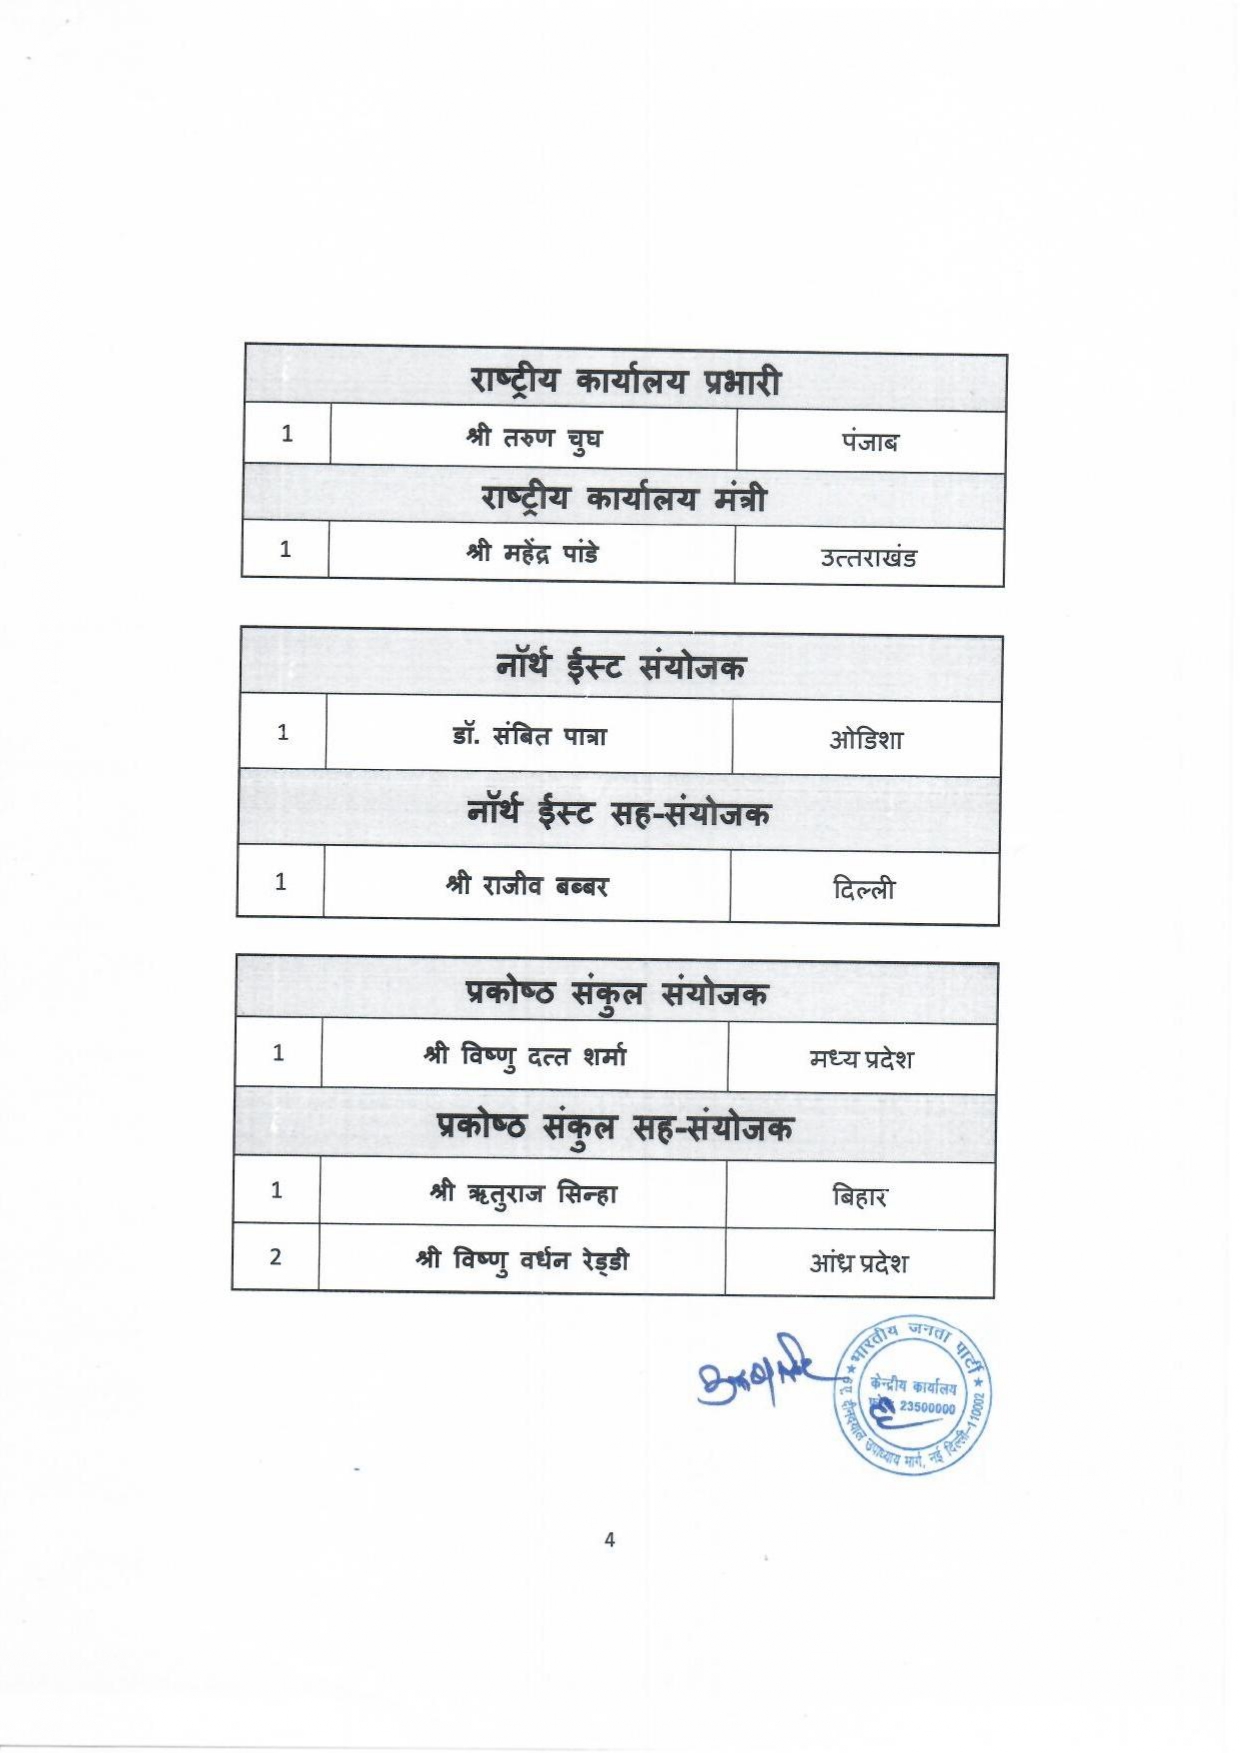 राष्ट्रीय कार्यालय प्रभारी
1 श्री तरुण चुघ पंजाब
राष्ट्रीय कार्यालय मंत्री
1 श्री महेंद्र पांडे उत्तराखंड
नॉर्थ ईस्ट संयोजक
1 डॉ. संबित पात्रा ओडिशा
नॉर्थ ईस्ट सह-संयोजक
1 श्री राजीव बब्बर दिल्ली
प्रकोष्ठ संकुल संयोजक
1 श्री विष्णु दत्त शर्मा मध्य प्रदेश
प्रकोष्ठ संकुल सह-संयोजक
1 श्री ऋतुराज सिन्हा बिहार
2 श्री विष्णु वर्धन रेड्डी आंध्र प्रदेश
★ भारतीय जनता पार्टी ★
केन्द्रीय कार्यालय
23500000
दीनदयाल उपाध्याय मार्ग, नई दिल्ली-110002
4